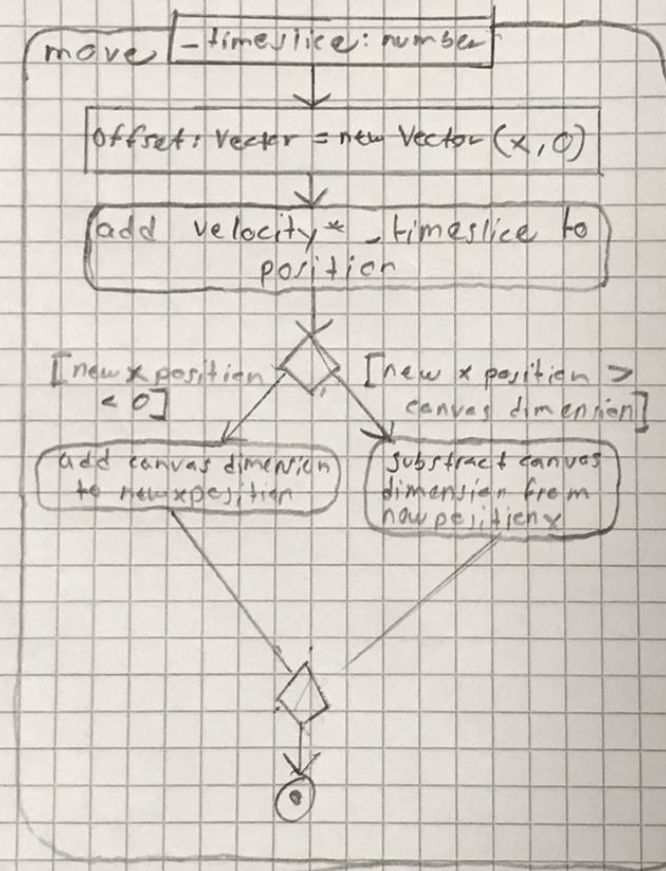 move
_timeslice: number
offset: Vector = new Vector (x, 0)
add velocity* _timeslice to
position
[new x position
< 0]
[new x position >
canvas dimension]
add canvas dimension
to new x position
substract canvas
dimension from
new position x